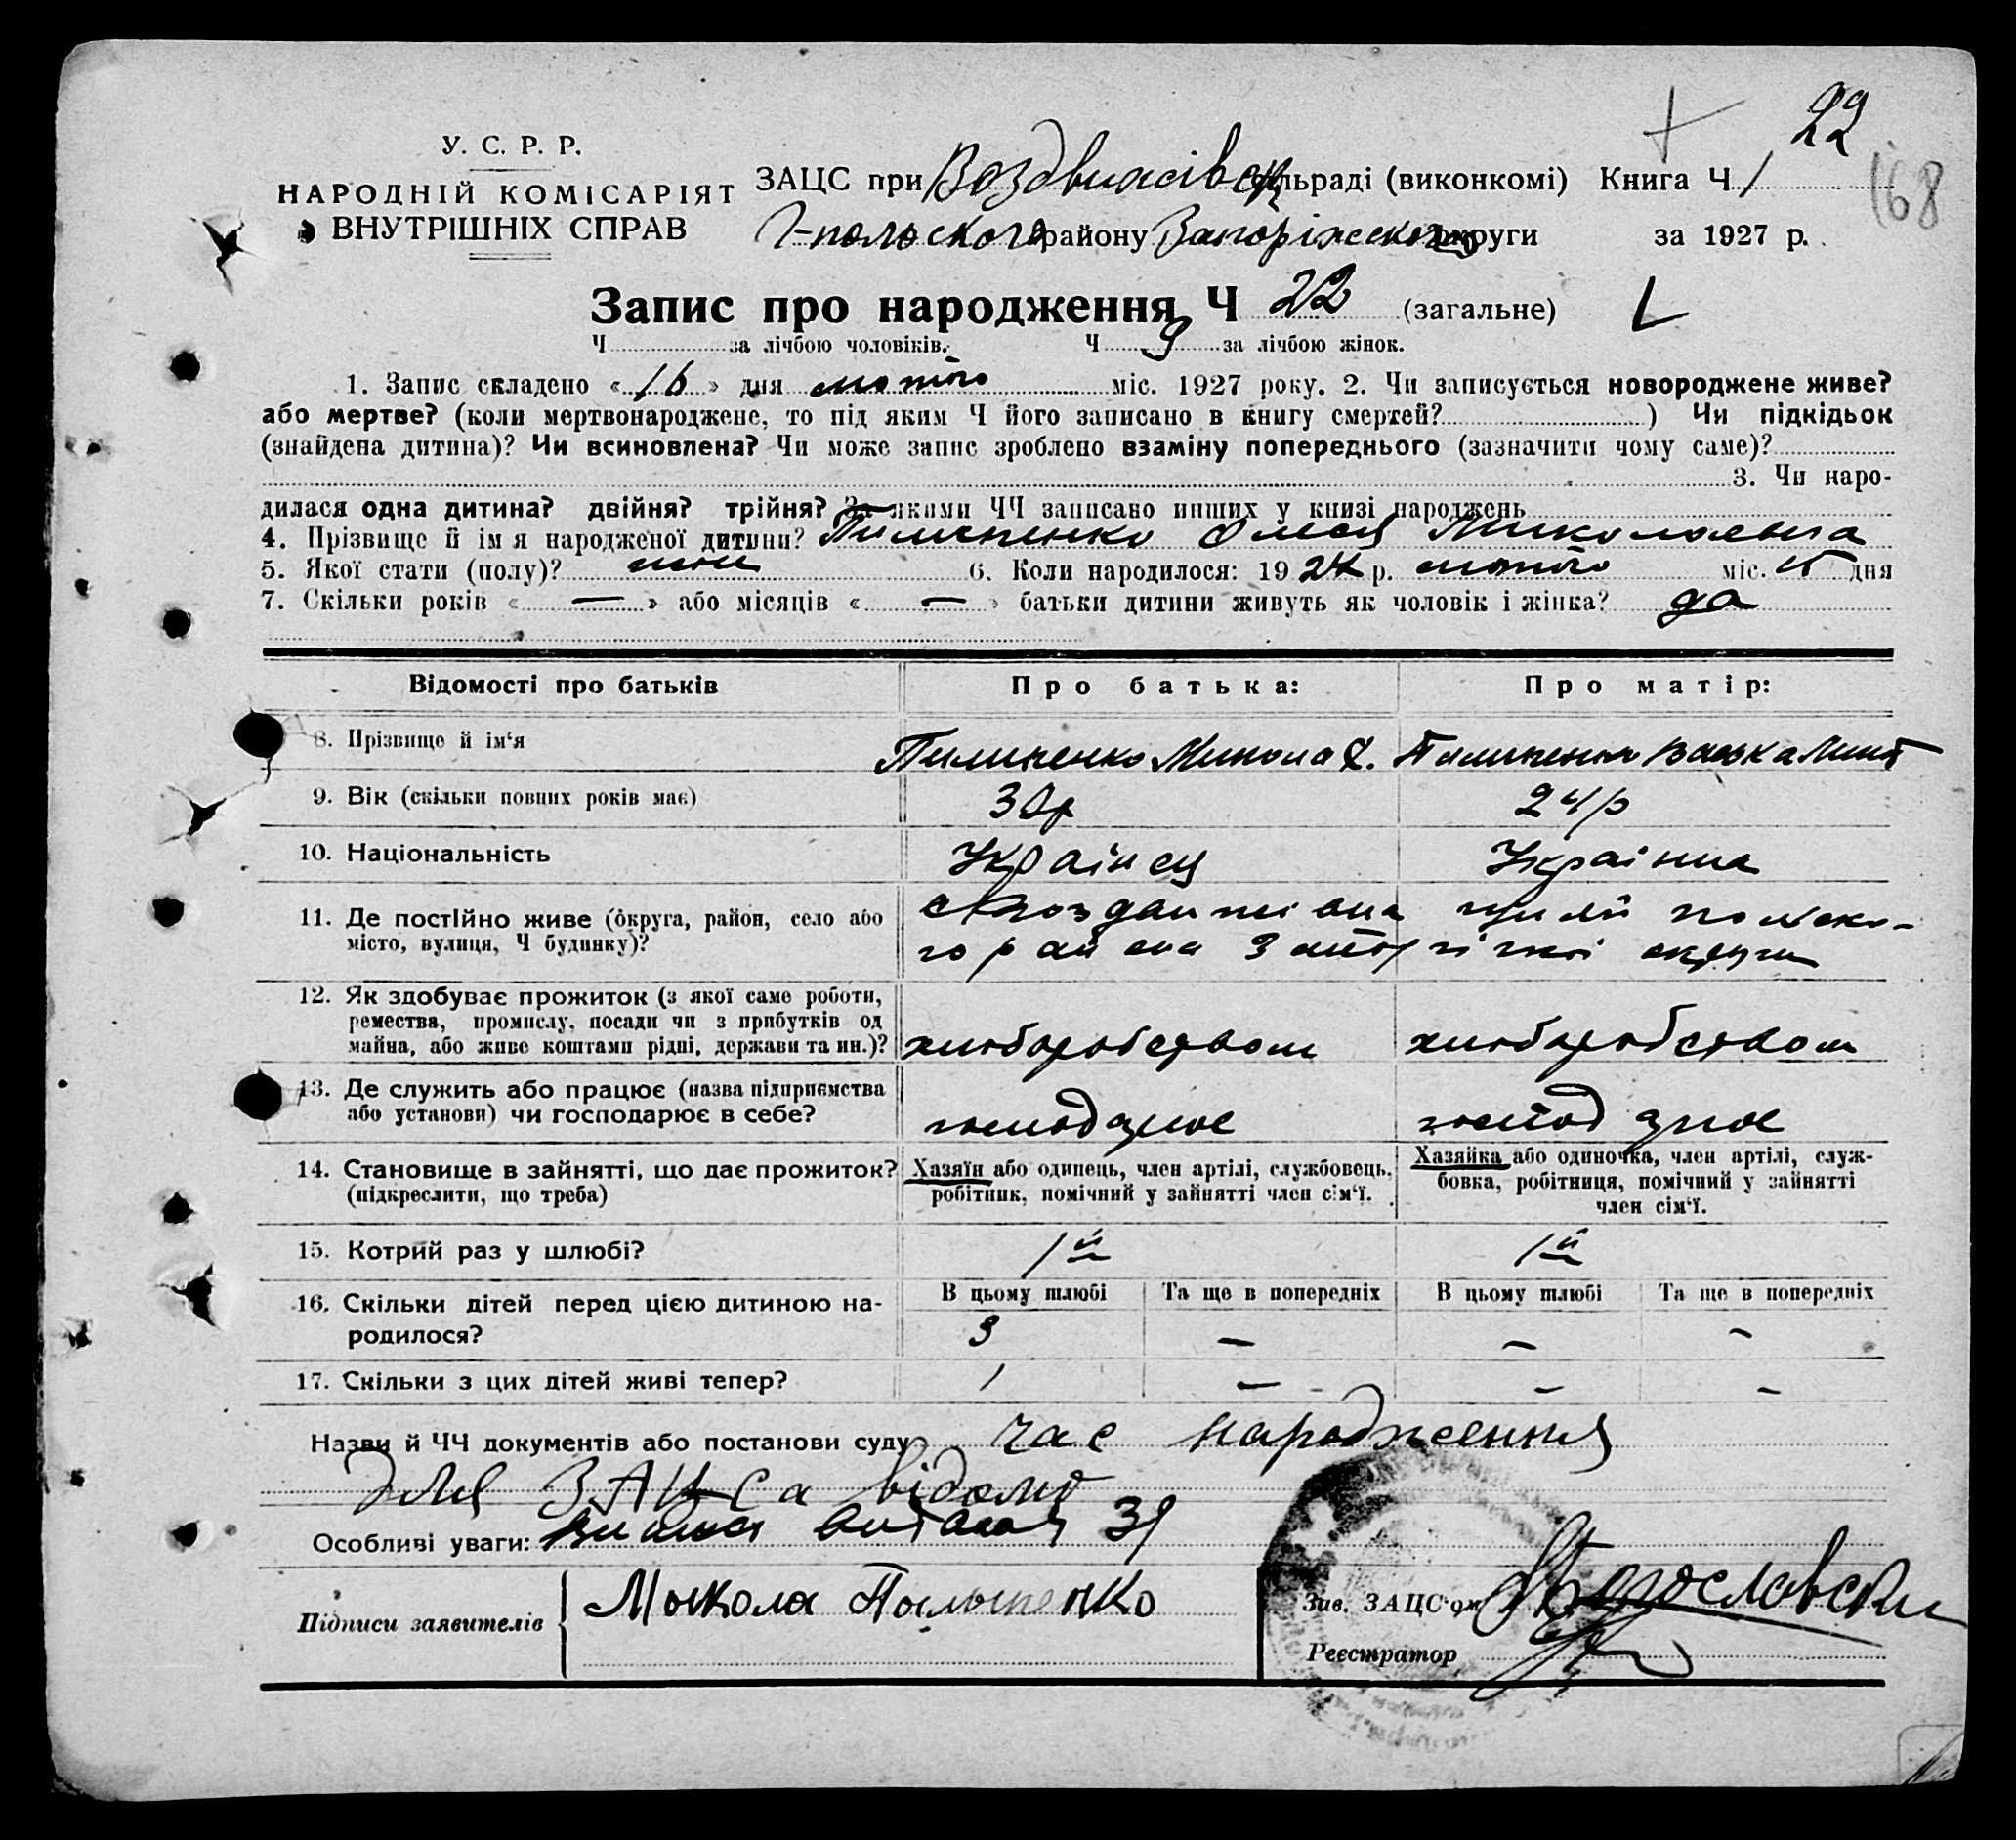 22
168
У. С. Р. Р.
НАРОДНІЙ КОМІСАРІЯТ
ВНУТРІШНІХ СПРАВ
ЗАЦС при Воздвижівськ сільраді (виконкомі) Книга Ч 1
Г-польского району Запоріжского округи за 1927 р.
Запис про народження Ч 22 (загальне)
Ч за лічбою чоловіків. Ч 9 за лічбою жінок.
1. Запис складено « 16 » дня лютого міс. 1927 року. 2. Чи записується новороджене живе?
або мертве? (коли мертвонароджене, то під яким Ч його записано в книгу смертей? ) Чи підкідьок
(знайдена дитина)? Чи всиновлена? Чи може запис зроблено взаміну попереднього (зазначити чому саме)?
3. Чи наро-
дилася одна дитина? двійня? трійня? За якими ЧЧ записано инших у книзі народжень
4. Прізвище й ім я народженої дитини? Пилипенко Олеся Миколаевна
5. Якої стати (полу)? жін 6. Коли народилося: 19 р. лютого міс. 15 дня
7. Скільки років « — » або місяців « — » батьки дитини живуть як чоловік і жінка? да
Відомості про батьків Про батька: Про матір:
8. Прізвище й ім‘я Пилипенко Микола Пилипенко
9. Вік (скільки повних років має) 30р 24р
10. Національність Українец Українка
11. Де постійно живе (округа, район, село або
місто, вулиця, Ч будинку)?
району округи
12. Як здобуває прожиток (з якої саме роботи,
ремества, промислу, посади чи з прибутків од
майна, або живе коштами рідні, держави та ин.)? хліборобством хліборобством
13. Де служить або працює (назва підприємства
або установи) чи господарює в себе? господарює господарює
14. Становище в зайнятті, що дає прожиток?
(підкреслити, що треба)
Хазяїн або одинець, член артілі, службовець,
робітник, помічний у зайнятті член сім‘ї.
Хазяйка або одиночка, член артілі, служ-
бовка, робітниця, помічний у зайнятті
член сім‘ї.
15. Котрий раз у шлюбі? 1й 1й
16. Скільки дітей перед цією дитиною на-
родилося?
В цьому шлюбі Та ще в попередніх В цьому шлюбі Та ще в попередніх
3 — — —
17. Скільки з цих дітей живі тепер? 1 — — —
Назви й ЧЧ документів або постанови суду час народження
для ЗАЦСа відомо
Особливі уваги: видана 39
Підписи заявителів Мыкола Палыпенко
Зав. ЗАЦС‘ом
Реєстратор